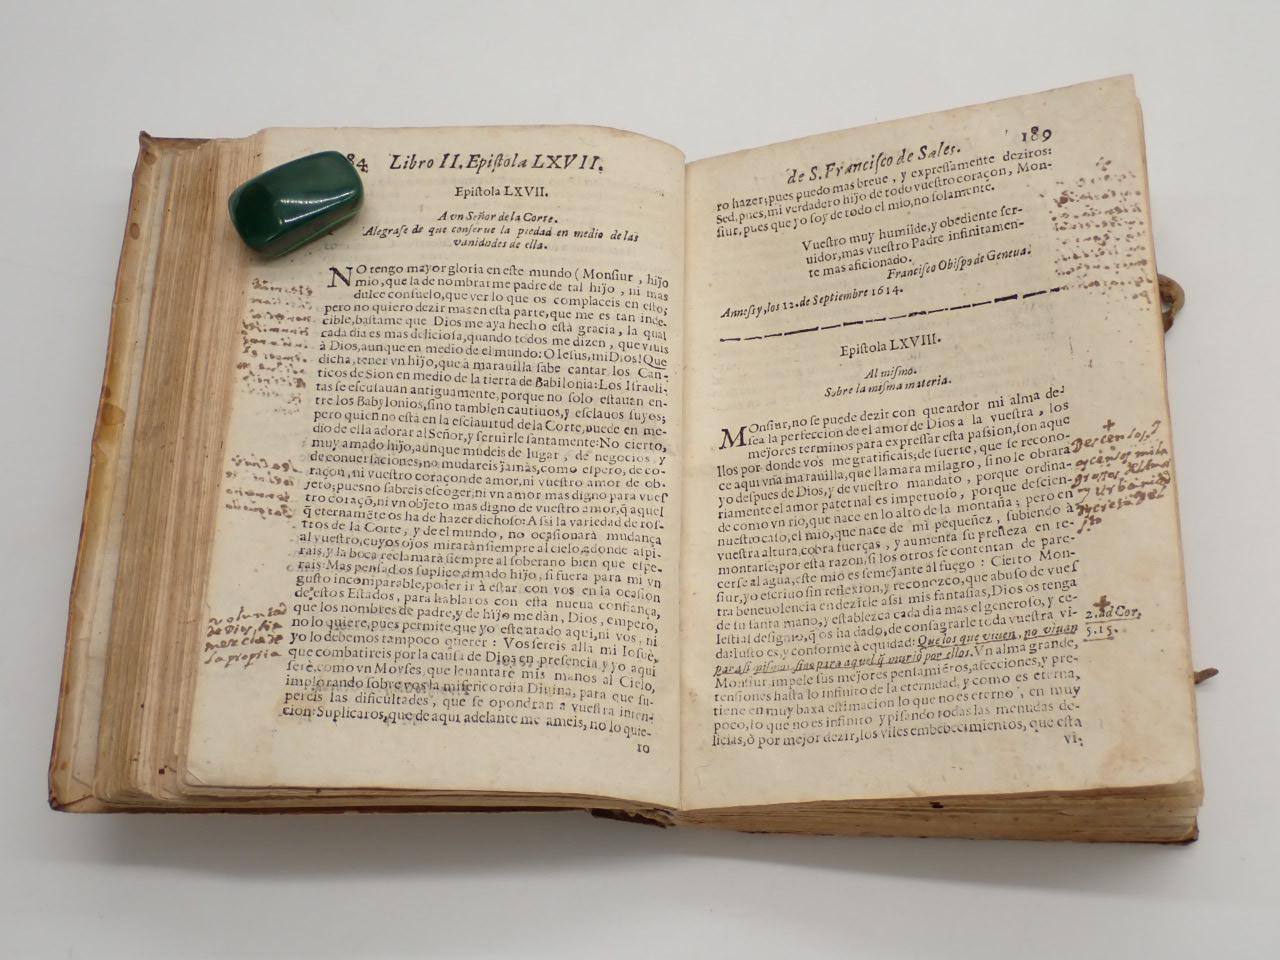 84 Libro II. Epiſtola LXVII.
Epiſtola LXVII.
A vn Señor de la Corte.
Alegraſe de que conſerue la piedad en medio de las
vanidades de ella.
NO tengo mayor gloria en eſte mundo (Monſiur, hijo
mio, que la de nombrarme padre de tal hijo, ni mas
dulce conſuelo, que ver lo que os complaceis en eſto;
pero no quiero dezir mas en eſta parte, que me es tan inde-
cible, baſtame que Dios me aya hecho eſta gracia, la qual
cada dia es mas delicioſa, quando todos me dizen, que viuis
à Dios, aunque en medio de el mundo: O Ieſus, mi Dios! Que
dicha, tener vn hijo, que à marauilla ſabe cantar los Can-
ticos de Sion en medio de la tierra de Babilonia: Los Iſraeli-
tas ſe eſcuſauan antiguamente, porque no ſolo eſtauan en-
tre los Babylonios, ſino tambien cautiuos, y eſclauos ſuyos;
pero quien no eſtà en la eſclauitud de la Corte, puede en me-
dio de ella adorar al Señor, y ſeruirle ſantamente: No cierto,
muy amado hijo, aunque mudeis de lugar, de negocios, y
de conuerſaciones, no mudareis jamàs, como eſpero, de co-
raçon, ni vueſtro coraçon de amor, ni vueſtro amor de ob-
jeto; pues no ſabreis eſcoger, ni vn amor mas digno para vueſ
tro coraçõ, ni vn objeto mas digno de vueſtro amor, q̃ aquel
q̃ eternamẽte os ha de hazer dichoſo: Aſsi la variedad de roſ-
tros de la Corte, y de el mundo, no ocaſionarà mudança
al vueſtro, cuyos ojos miraràn ſiempre al cielo, adonde aſpi-
rais, y la boca reclamarà ſiempre al ſoberano bien que eſpe-
rais: Mas penſad os ſuplico, amado hijo, ſi fuera para mi vn
guſto incomparable, poder ir à eſtar con vos en la ocaſion
de eſtos Eſtados, para hablaros con eſta nueua confiança,
que los nombres de padre, y de hijo me dàn, Dios, empero,
no lo quiere, pues permite que yo eſte atado aqui, ni vos, ni
yo lo debemos tampoco querer: Vos ſereis allà mi Ioſuè,
que combatireis por la cauſa de Dios en preſencia, y yo aqui
ſerè, como vn Moyſes, que leuantarè mis manos al Cielo,
implorando ſobre vos la miſericordia Diuina, para que ſu-
pereis las dificultades, que ſe opondran a vueſtra inten-
cion: Suplicaros, que de aqui adelante me ameis, no lo quie-
ro
voluntad
de Dios,
la propia
de S. Franciſco de Sales. 189
ro hazer; pues puedo mas breue, y expreſſamente deziros:
Sed, pues, mi verdadero hijo de todo vueſtro coraçon, Mon-
ſiur, pues que yo ſoy de todo el mio, no ſolamente.
Vueſtro muy humilde, y obediente ſer-
uidor, mas vueſtro Padre infinitamen-
te mas aficionado.
Franciſco Obiſpo de Geneua.
Anneſsy, los 12. de Septiembre 1614.
Epiſtola LXVIII.
Al miſmo.
Sobre la miſma materia.
MOnſiur, no ſe puede dezir con que ardor mi alma de-
ſea la perfeccion de el amor de Dios a la vueſtra, los
mejores terminos para expreſſar eſta paſsion, ſon aque
llos por donde vos me gratificais; de ſuerte, que ſe recono-
ce aqui vna marauilla, que llamara milagro, ſi no le obrara
yo deſpues de Dios, y de vueſtro mandato, porque ordina-
riamente el amor paternal es impetuoſo, porque deſcien-
de como vn rio, que nace en lo alto de la montaña; pero en
nueſtro caſo, el mio, que nace de mi pequeñez, ſubiendo à
vueſtra altura, cobra fuerças, y aumenta ſu preſteza en re-
montarſe; por eſta razon, ſi los otros ſe contentan de pare-
cerſe al agua, eſte mio es ſemejante al fuego: Cierto Mon-
ſiur, yo eſcriuo ſin reflexion, y reconozco, que abuſo de vueſ
tra beneuolencia en dezirle aſsi mis fantaſias, Dios os tenga
de ſu ſanta mano, y eſtablezca cada dia mas el generoſo, y ce-
leſtial deſignio, q̃ os ha dado, de conſagrarle toda vueſtra vi-
da: Iuſto es, y conforme à equidad: Que los que viuen, no viuan
para ſi miſmos, ſino para aquel q̃ murió por ellos. Vn alma grande,
Monſiur, impele ſus mejores penſamiẽtos, afecciones, y pre-
tenſiones haſta lo infinito de la eternidad, y como es eterna,
tiene en muy baxa eſtimacion lo que no es eterno, en muy
poco, lo que no es infinito y piſando todas las menudas de-
licias, ò por mejor dezir, los viles embebecimientos, que eſta
vi-
2. ad Cor,
5. 15.